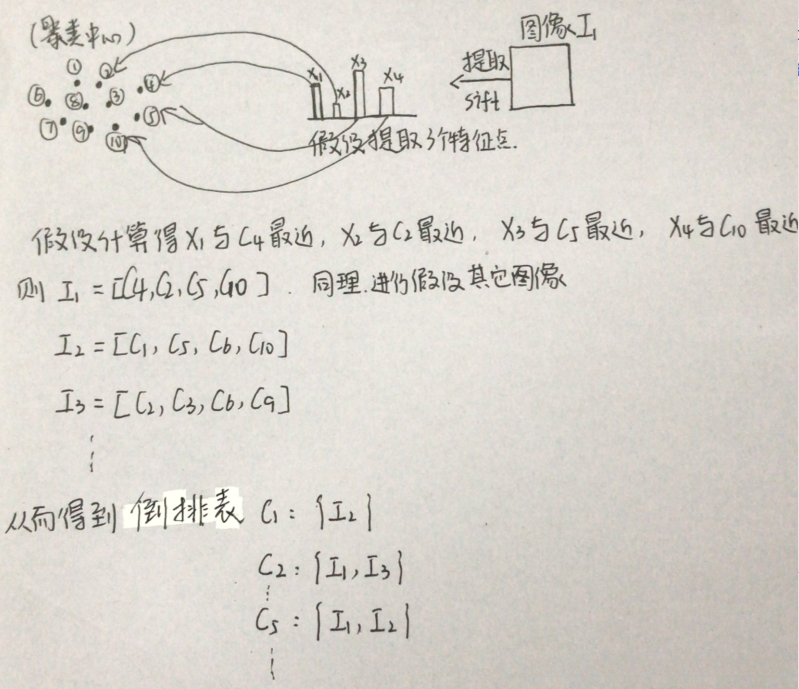 (聚类中心)
图像I₁
① ② ③ ④ ⑤ ⑥ ⑦ ⑧ ⑨ ⑩
X₁ X₂ X₃ X₄
提取
sift
假设提取3个特征点.
假设计算得X₁与C₄最近, X₂与C₂最近, X₃与C₅最近, X₄与C₁₀最近
则 I₁ = [C₄, C₂, C₅, C₁₀]. 同理.进行假设其它图像
I₂ = [C₁, C₅, C₆, C₁₀]
I₃ = [C₂, C₃, C₆, C₉]
从而得到 倒排表 C₁: {I₂}
C₂: {I₁, I₃}
C₅: {I₁, I₂}